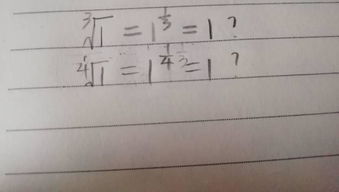 ∛1 = 1^(1/3) = 1 ?
∜1 = 1^(1/4) = 1 ?